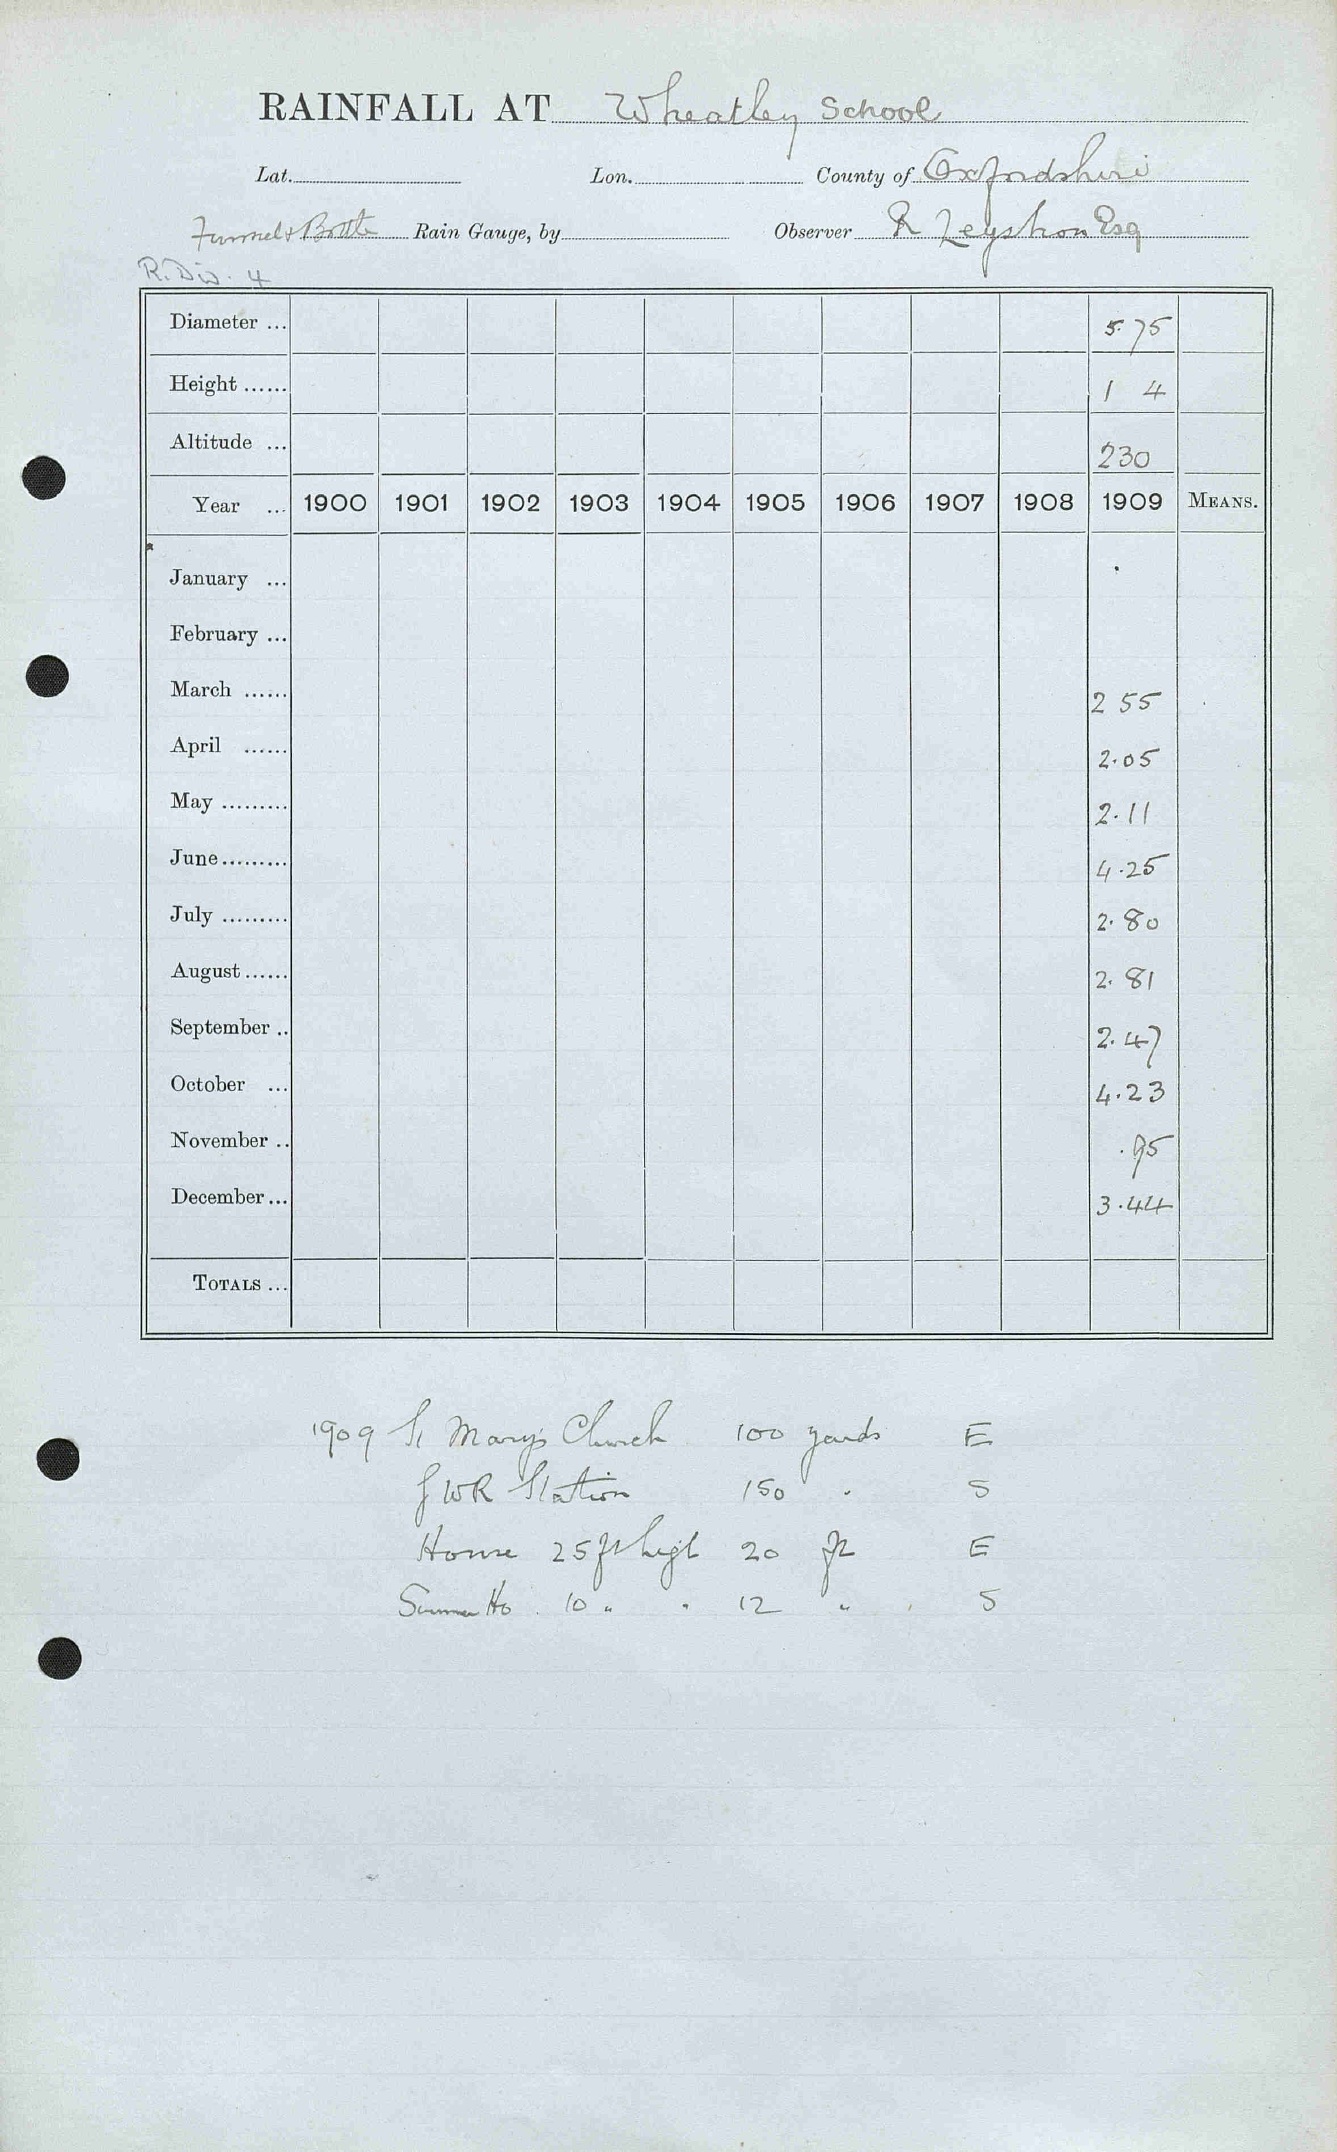 RAINFALL AT Wheatley School
Lat. Lon. County of Oxfordshire
Funnel & Bottle Rain Gauge, by Observer R Leyshon Esq
R. Div. 4
Diameter ... 5.75
Height ...... 1 4
Altitude ... 230
Year ... 1900 1901 1902 1903 1904 1905 1906 1907 1908 1909 MEANS.
January ...
February ...
March ...... 2 55
April ...... 2.05
May ......... 2.11
June ......... 4.25
July ......... 2.80
August ...... 2.81
September .. 2.47
October ... 4.23
November .. .95
December ... 3.44
TOTALS ...
1909 St Mary's Church 100 yards E
GWR Station 150 " S
House 25 ft high 20 ft E
Summer Ho. 10 " " 12 " S